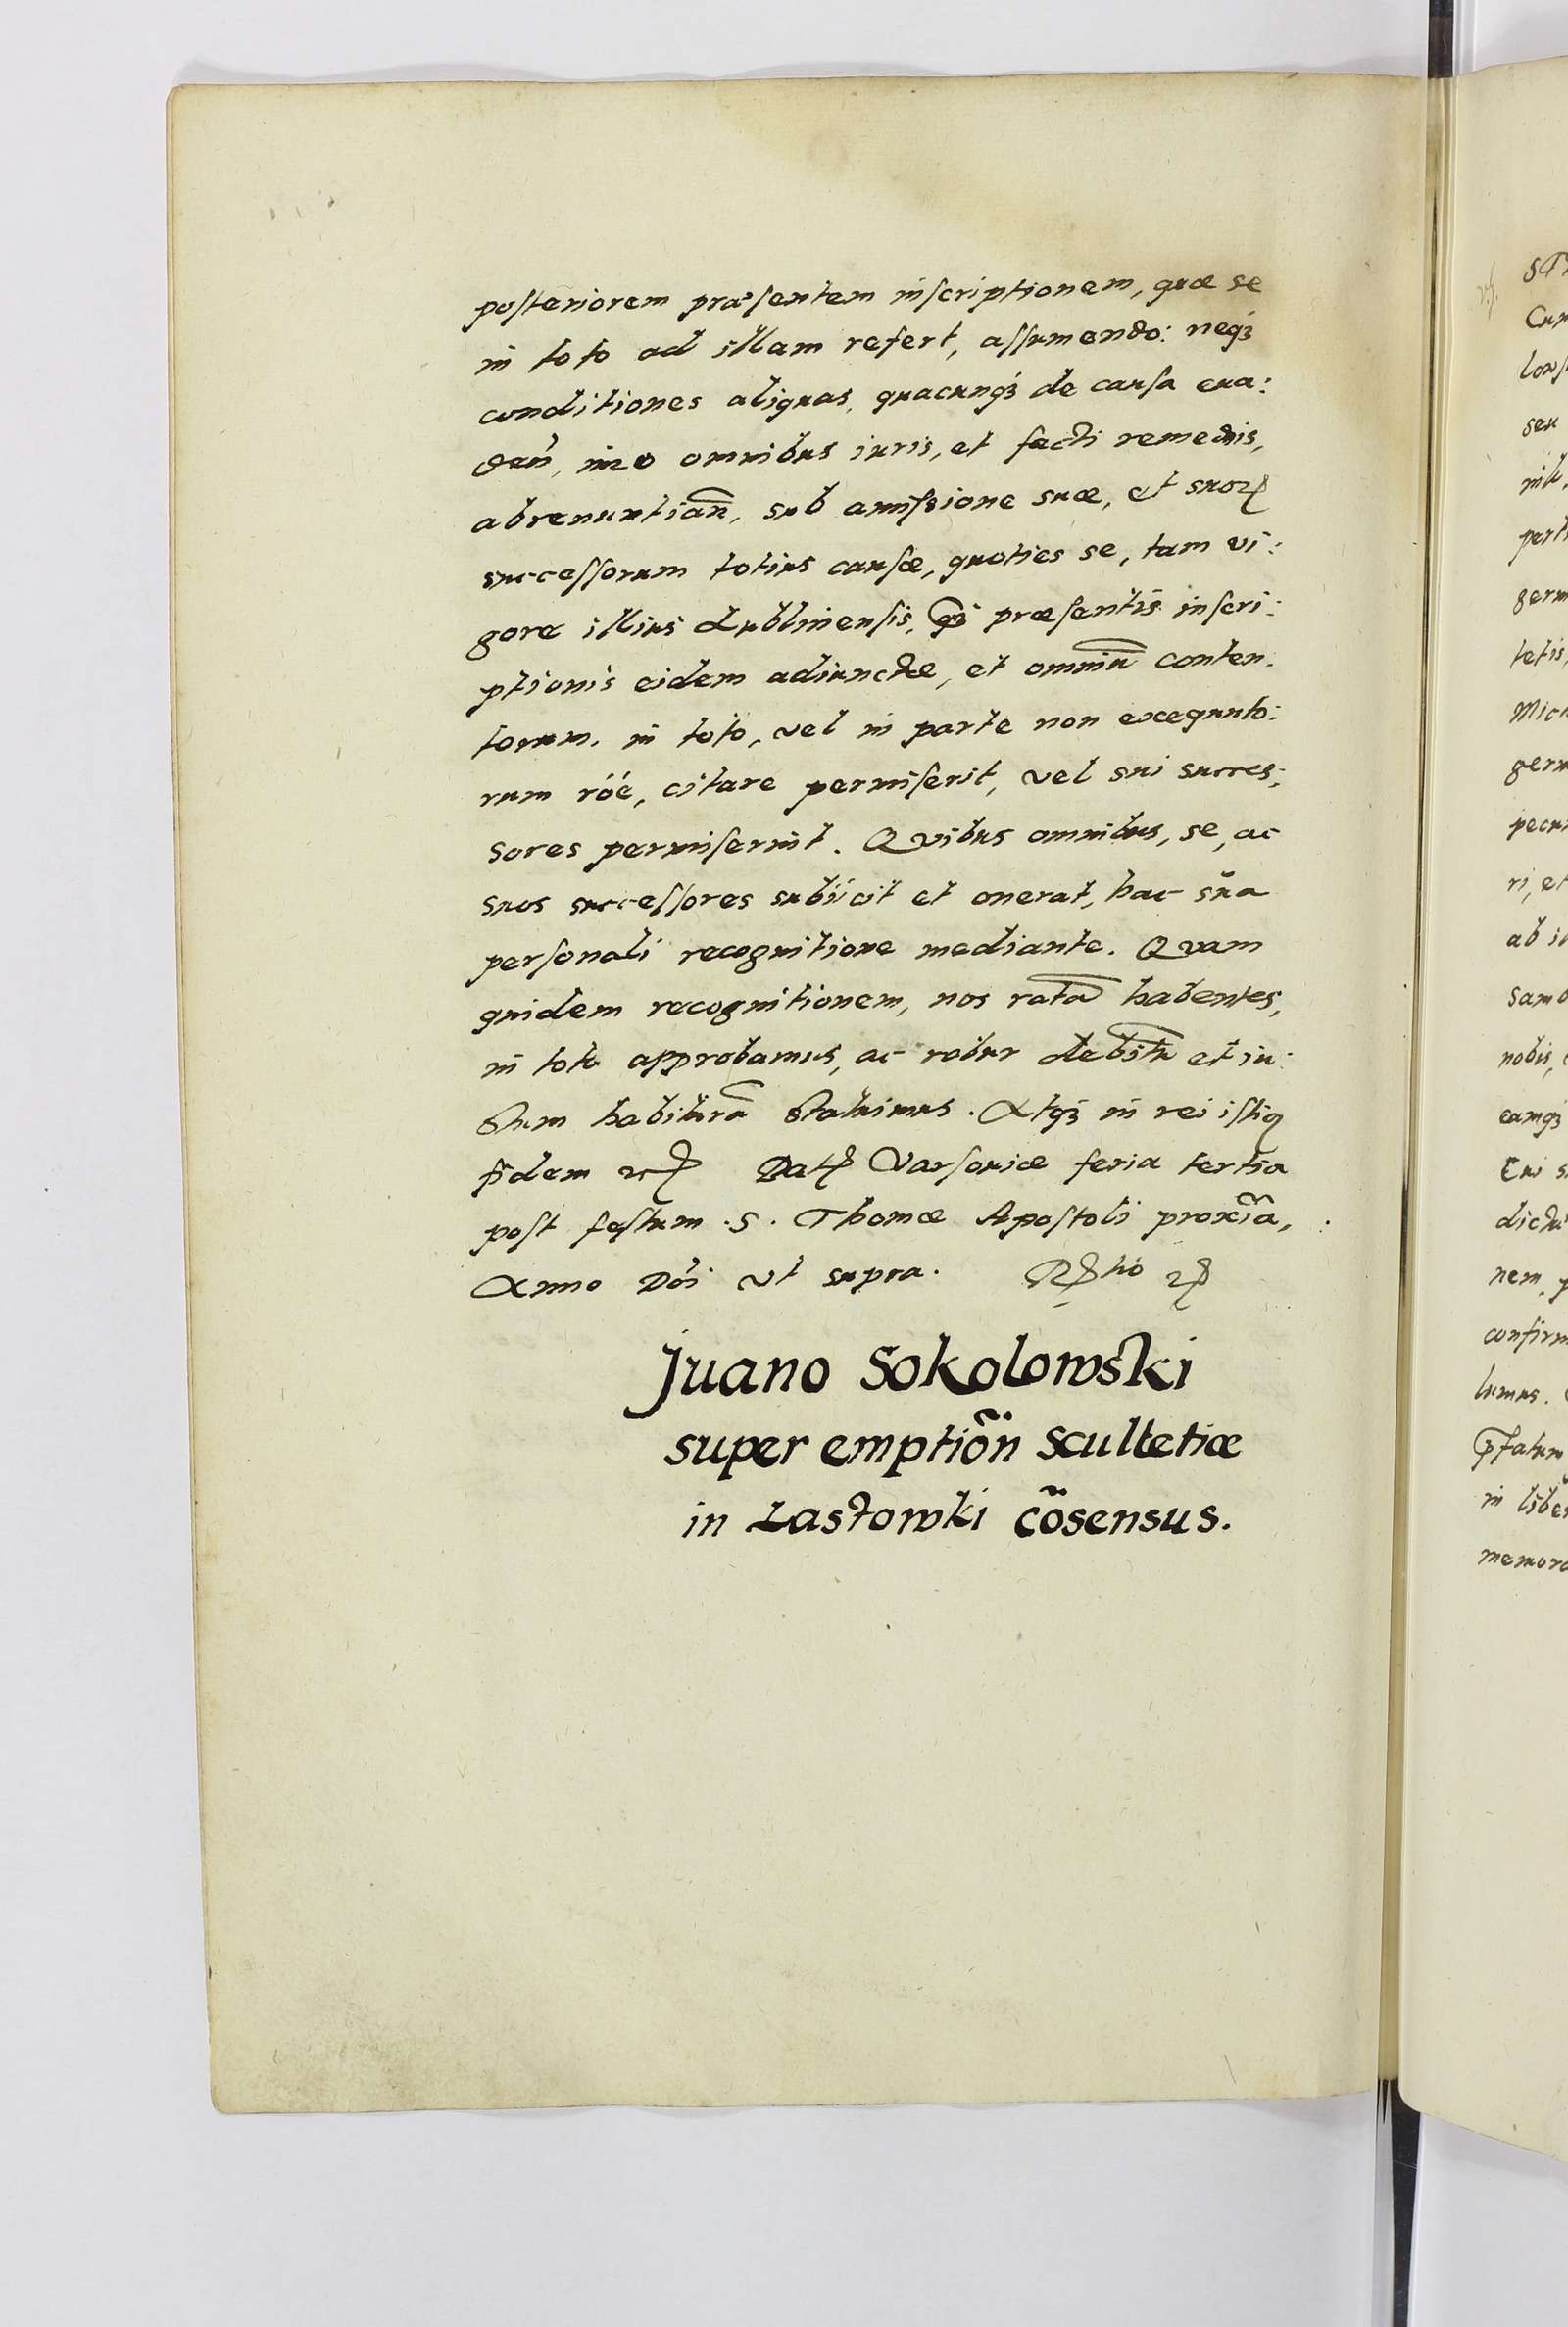 posteriorem præsentem inscriptionem, quæ se
in toto ad illam refert, assumendo: neqꝫ
conditiones aliquas, quacunqꝫ de causa eua:
deñ, imo omnibus iuris, et facti remediis,
abrenuntiañ, sub amissione suæ, et suoꝝ
successorum totius causæ, quoties se, tam vi:
gore illius Lublinensis, qꝫ præsentis inscri:
ptionis eidem adiunctæ, et omniũ conten:
torum, in toto, vel in parte non exequuto:
rum róé, citare permiserit, vel sui succes:
sores permiserint. Quibus omnibus, se, ac
suos successores subiicit et onerat, hac sũa
personali recognitione mediante. Quam
quidem recognitionem, nos ratã habentes,
in toto approbamus, ac robur debitũ et iu:
stum habiturã statuimus. Atqꝫ in rei istiꝰ
fidem ꝛcꝭ Datꝭ Varsouiæ feria tertia
post festum .S. Thomæ Apostoli proxĩã,
Anno Dõi vt supra. Rꝭtio ꝛꝭ
Juano Sokolowski
super emptiõñ scultetiæ
in Lastowki cõsensus.
Cum
seu
germ
tetis,
germ
ri, et
nobis,
eamqꝫ
Cui
nem,
lumus.
p̃fatum
in